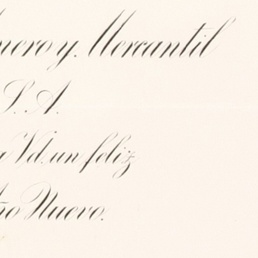 nero y Mercantil
S. A.
a Vd. un feliz
ño Nuevo.